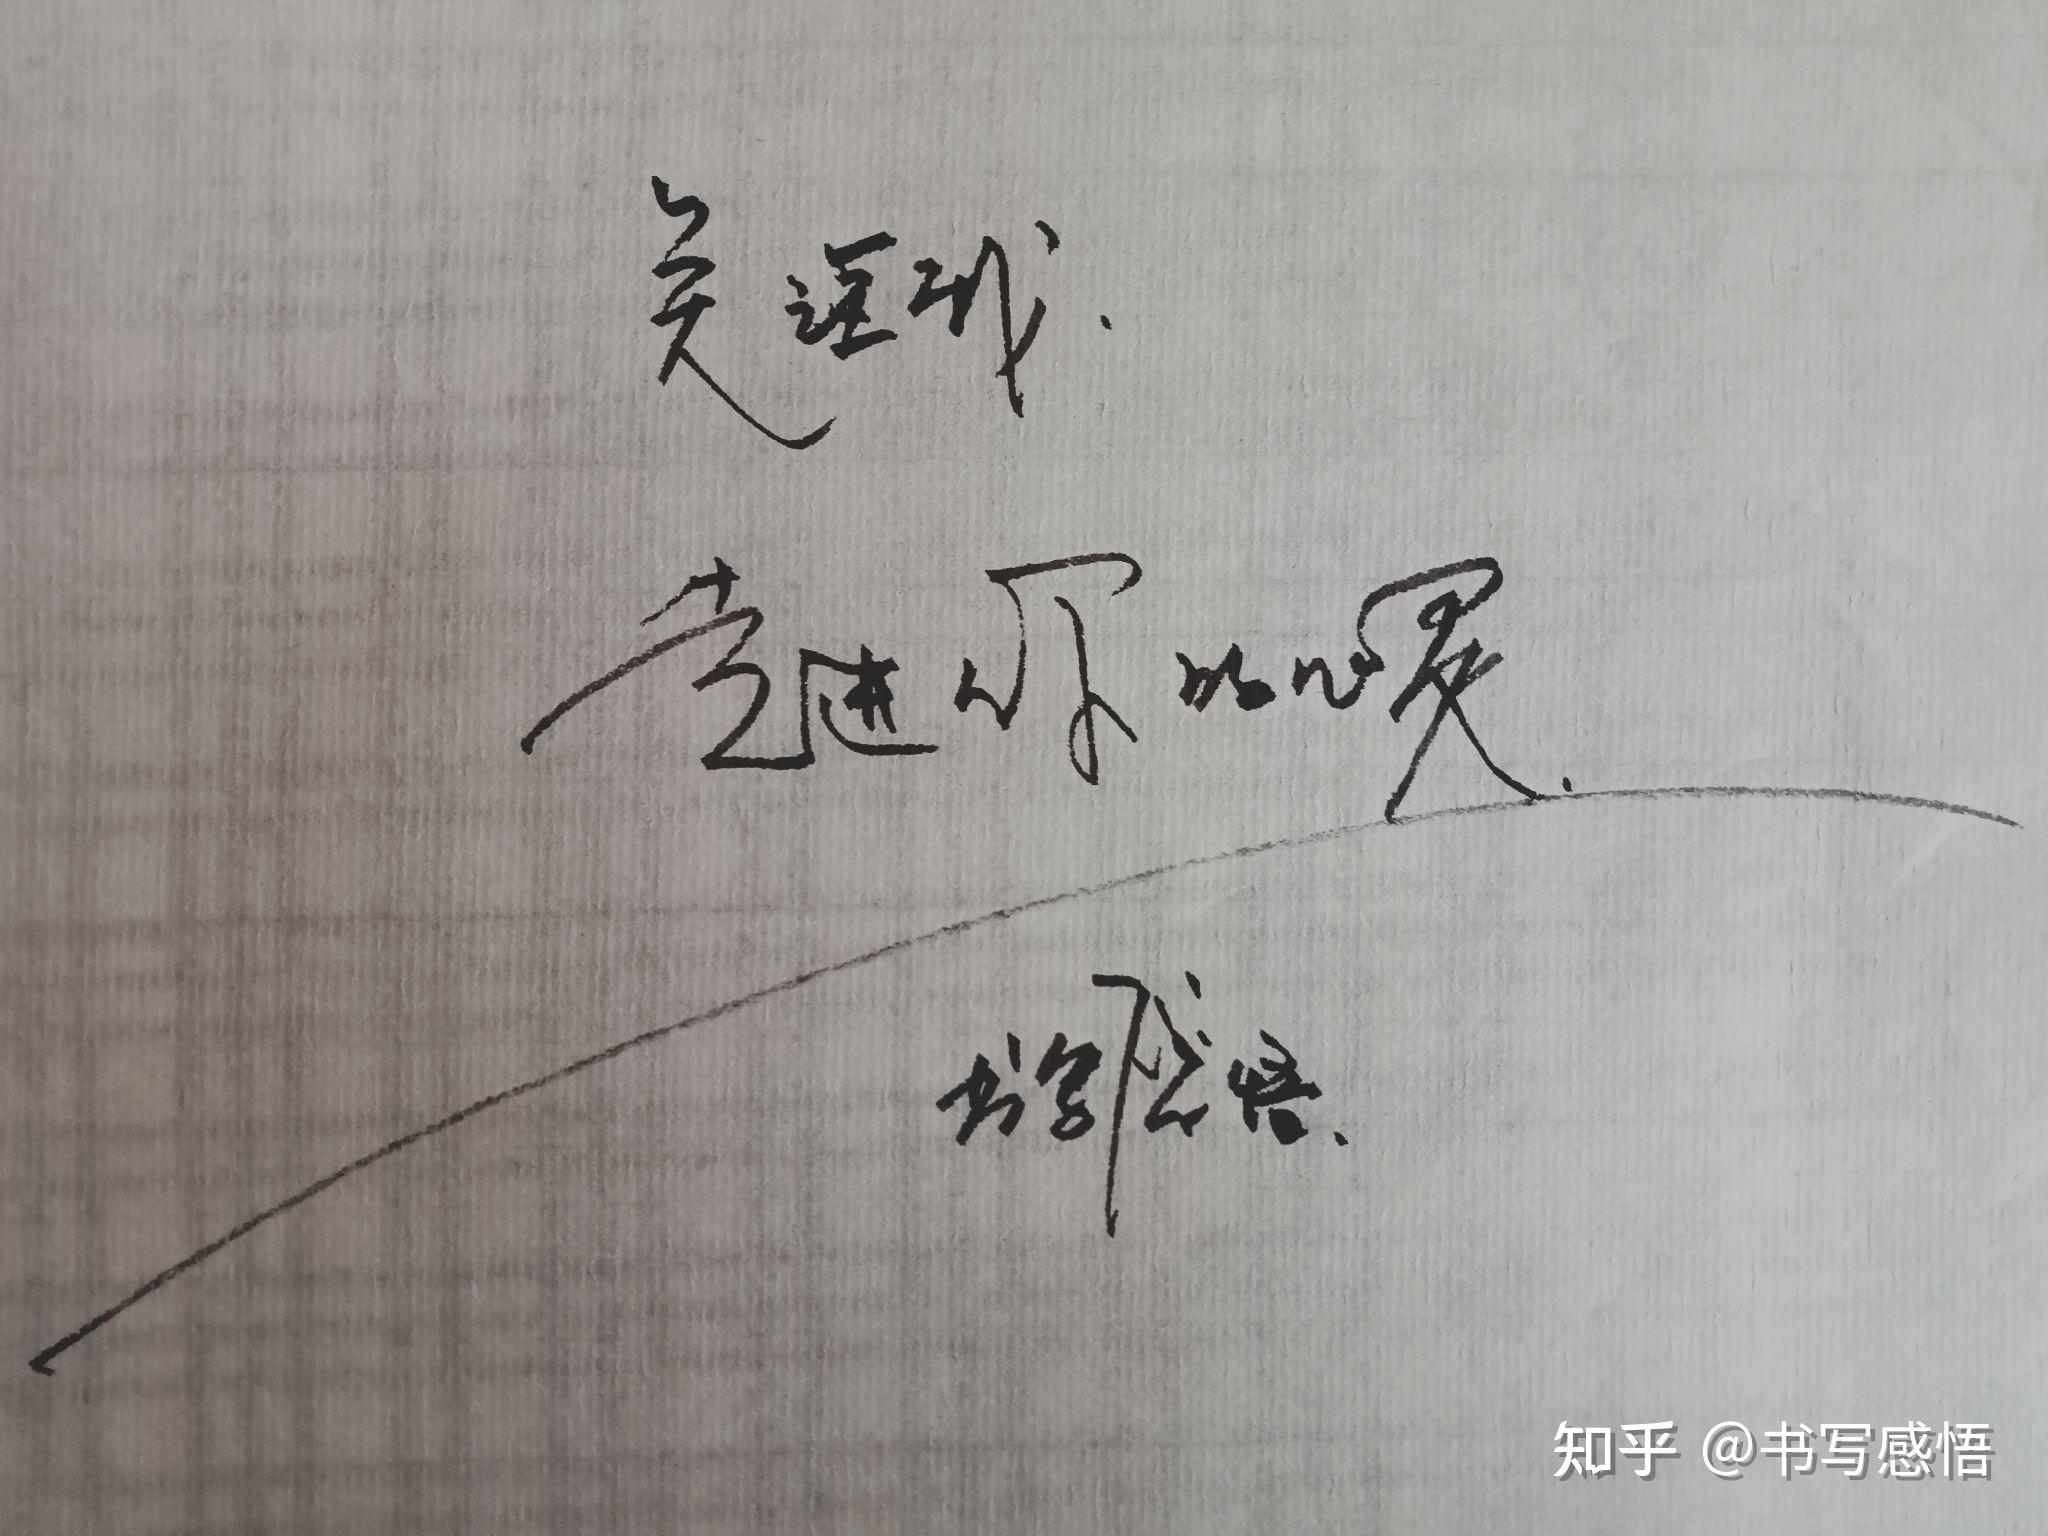 关注我.
走进你的心里.
书写感悟.
知乎 @书写感悟